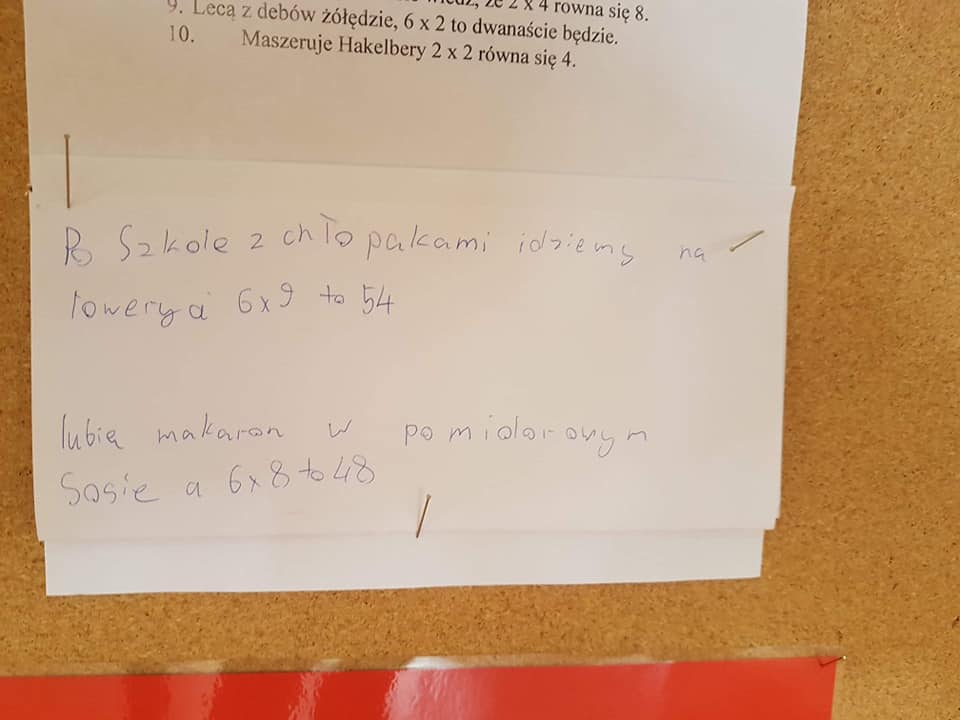 że 2 x 4 równa się 8.
9. Lecą z debów żółędzie, 6 x 2 to dwanaście będzie.
10. Maszeruje Hakelbery 2 x 2 równa się 4.
Po Szkole z chłopakami idziemy na
rowery a 6x9 to 54
lubię makaron w pomidorowym
Sosie a 6x8 to 48